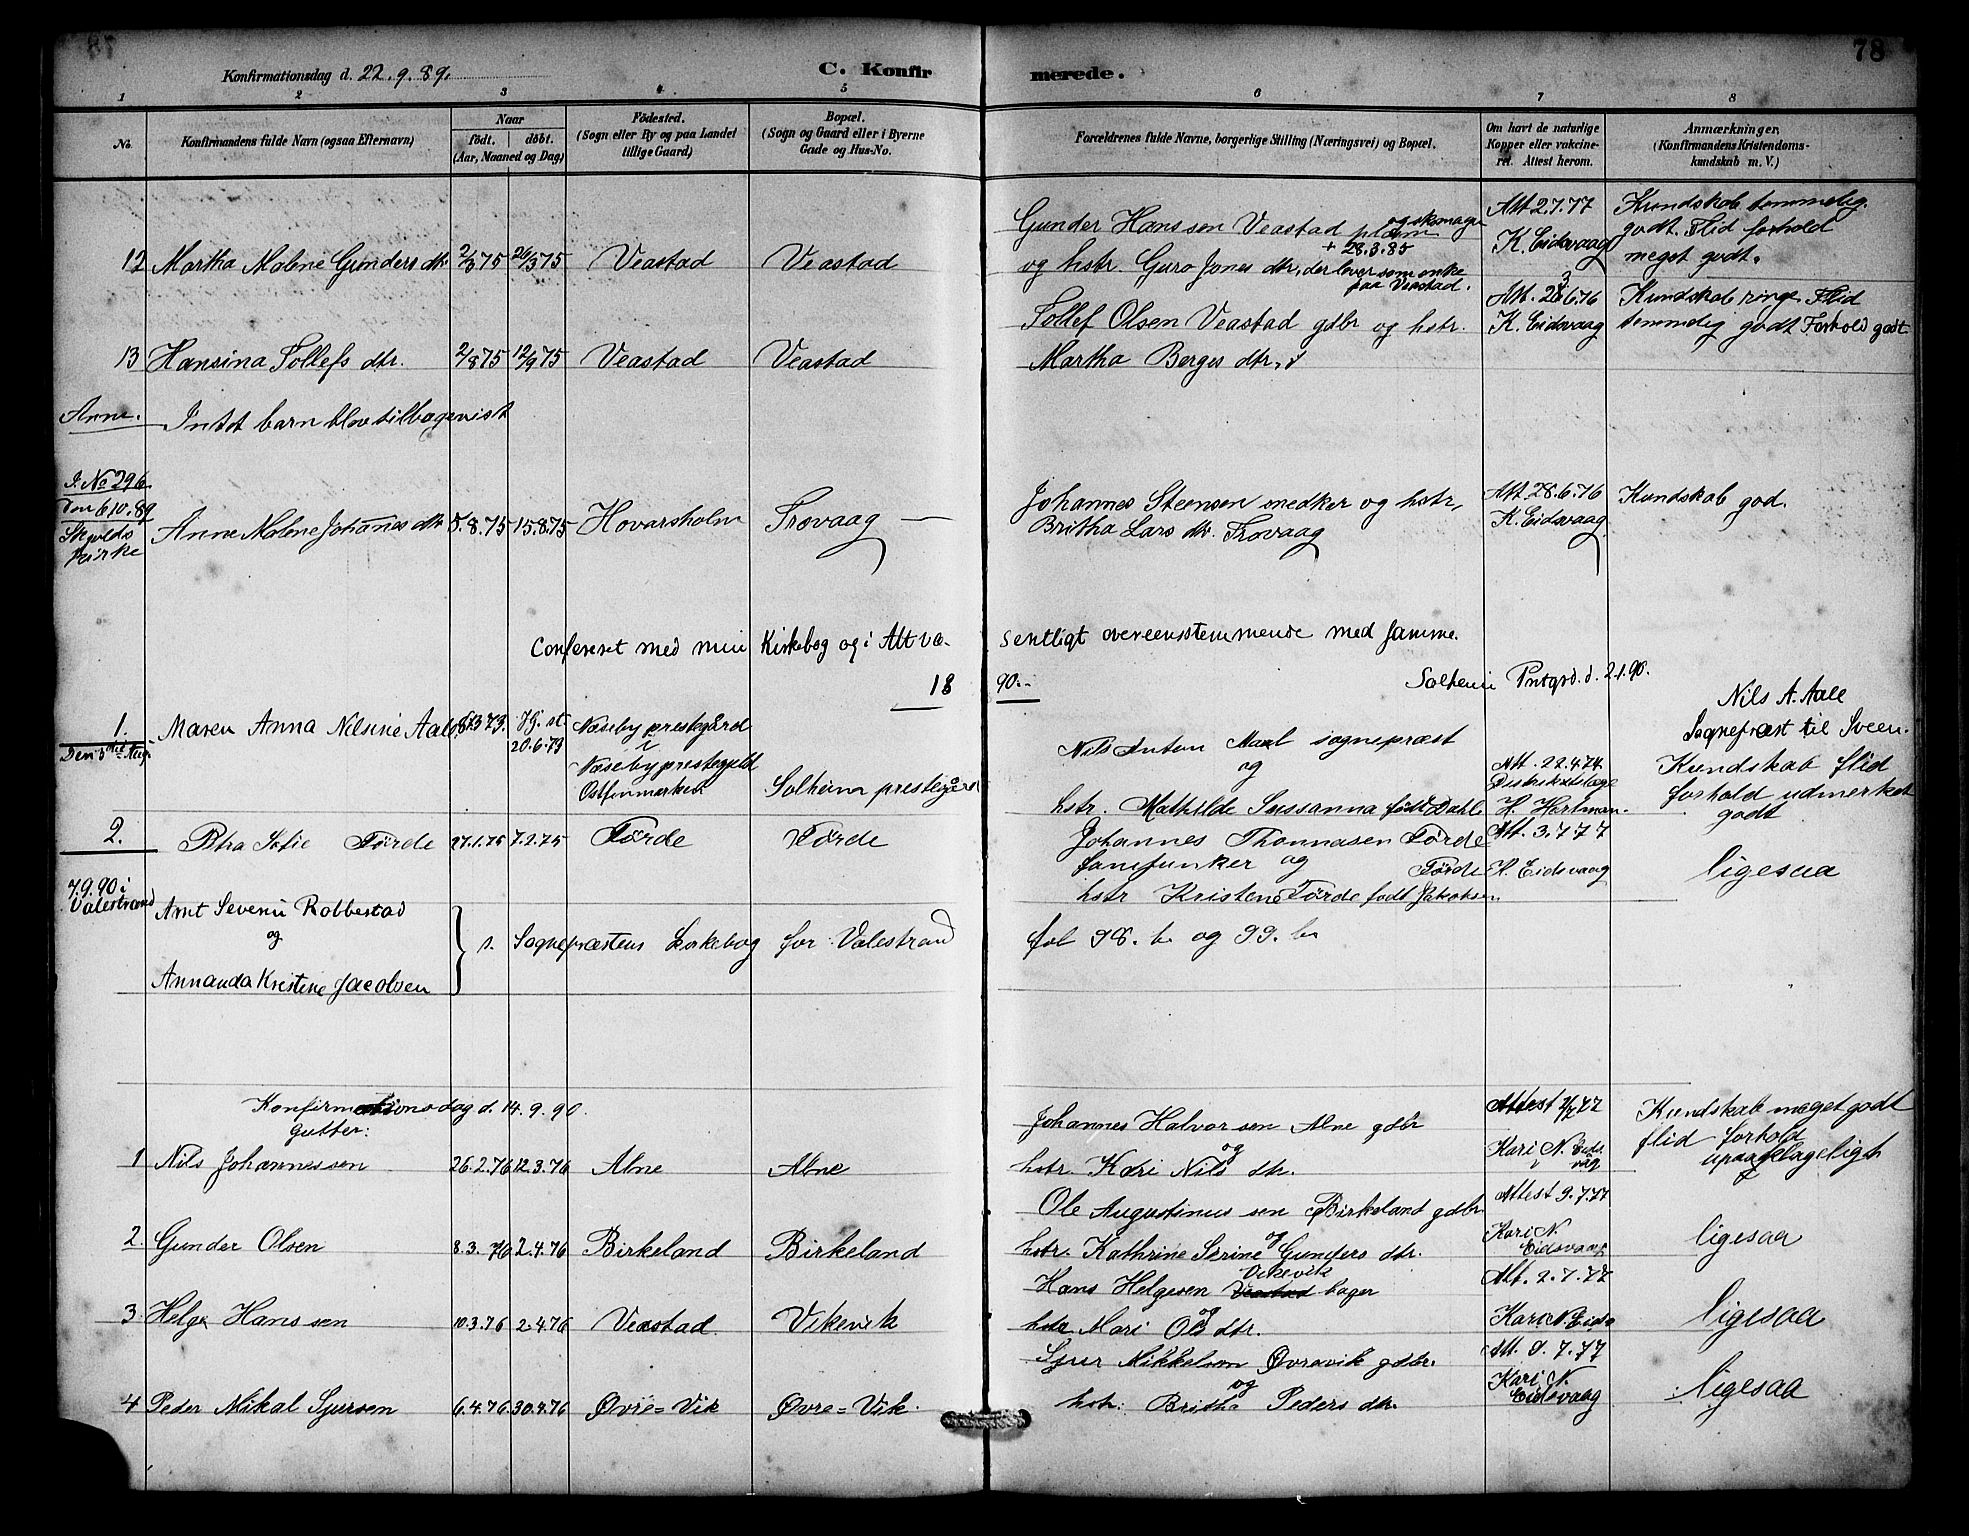 78
Konfirmationsdag d. 22.9.89.
C. Konfirmerede.
1 2 3 4 5 6 7 8
No. Konfirmandens fulde Navn (ogsaa Efternavn)
Naar født. døbt. (Aar, Maaned og Dag)
Födested. (Sogn eller By og paa Landet tillige Gaard)
Bopæl. (Sogn og Gaard eller i Byerne Gade og Hus-No.
Forældrenes fulde Navne, borgerlige Stilling (Næringsvei) og Bopæl.
Om havt de naturlige Kopper eller vakcineret. Attest herom.
Anmærkninger. (Konfirmandens Kristendomskundskab m. V.)
Gunder Hanssen Veastad og skomager
Att 2.7.77
Kundskab temmelig
godt. Flid forhold
+ 28.3.85
K. Eidsvaag
12 Martha Malene Gunders dtr 2/3 75 26/3 75 Veastad Veastad
og hstr. Guro Jones dtr, der lever som enke
paa Veastad.
meget godt.
Tollef Olsen Veastad gdbr og hstr.
Att. 28.6.76
K. Eidsvaag
Kundskab ringe Flid
temmelig godt Forhold godt
13 Hansina Tollefs dtr. 2/8 75 12/9 75 Veastad Veastad
Martha Berges dtr.
Anm. Intet barn blev tilbagevist
J. No 296
Den 6.10.89
Skjolds
Kirke
Anne Malene Johannes dtr 5.8.75 15.8.75 Hovarsholm Trovaag —
Johannes Steensen snedker og hstr,
Britha Lars dtr. Trovaag
Att 28.6.76
K. Eidsvaag
Kundskab god.
Confereret med min Kirkebog og i Alt væsentligt overeensstemmende med samme.
1890.
Solheim Prstgrd. d. 2.1.90.
Nils A. Aall
Sognepræst til Sveen.
1.
Maren Anna Nilsine Aall
Hj. st.
20.6.73
Næseby prestegård
i
Næseby prestegjeld
Ostfinmarken
Solheim prestegård
Nils Anton Aall sognepræst
og
hstr. Mathilde Sussanna født Dahl
Att. 22.4.74.
Distriktslæge
H. Hartman.
Kundskab flid
forhold udmerket
godt
2.
Petra Sofie Førde 27.1.75 7.2.75 Førde Førde
Johannes Thomassen Førde
og Førde
hstr Kristense Førde født Jakobsen
Att. 3.7.77
K. Eidsvaag
ligesaa
7.9.90 i
Valestrand
Arnt Severin Robbestad
og
Annanda Kristine Jacobsen
s. Sognepræstens Kirkebog for Valestrand
fol 98. b. og 99. b.
Konfirmationsdag d. 14.9.90.
Gutter:
Johannes Halvorsen Alne gdbr
og
Attest 2/7 77
Kundskab meget godt
1 Nils Johannessen 26.2.76 12.3.76 Alne Alne
hstr. Kari Nils dtr.
Kari N. Eids-
vag
flid forhold
upaaklageligt
Ole Augustinus sen Birkeland gdbr
og
Attest 9.7.77
2. Gunder Olsen 8.3.76 2.4.76 Birkeland Birkeland
hstr. Kathrine Serine Gunders dtr.
Kari N.
Eidsvaag
ligesaa
Vikevik
Hans Helgesen Veastad bager
og
Att. 2.7.77
3 Helge Hanssen 10.3.76 2.4.76 Veastad. Vikevik
hstr Mari Ols dtr.
Kari N. Eids
ligesaa
Sjur Mikkelsen Øvrevik gdbr.
og
Att. 9.7.77
4 Peder Mikal Sjursen 6.4.76 30.4.76 Øvre=Vik Øvre=Vik
hstr. Britha Peders dtr.
Kari N.
Eidsvaag
ligesaa